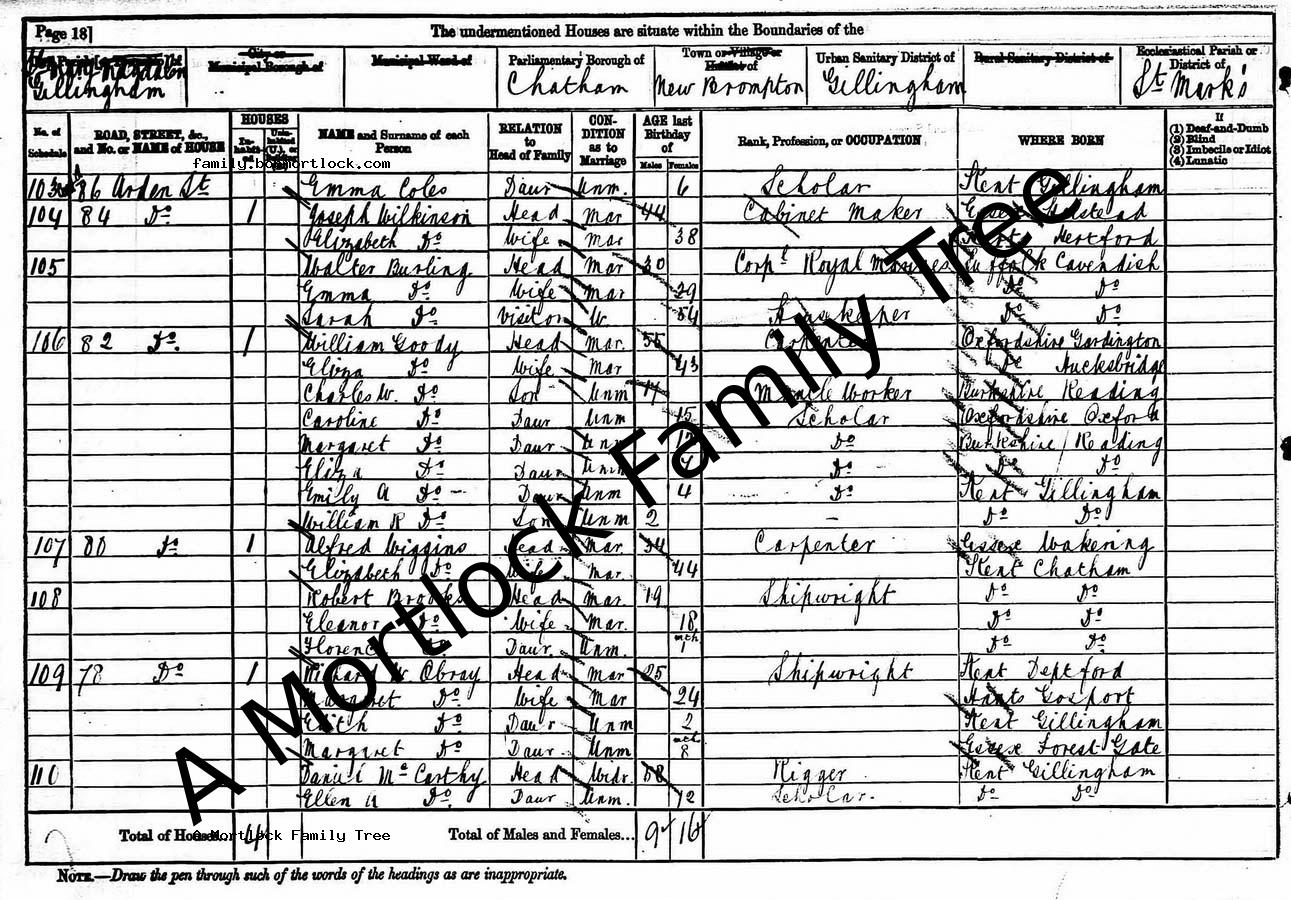 Page 18]
The undermentioned Houses are situate within the Boundaries of the
City or Municipal Borough of
Municipal Ward of
Parliamentary Borough of
Town or Village or Hamlet of
Urban Sanitary District of
Rural Sanitary District of
Ecclesiastical Parish or District of
Gillingham
Chatham
New Brompton
Gillingham
St Mark's
No. of Schedule
ROAD, STREET, &c., and No. or NAME of HOUSE
HOUSES
NAME and Surname of each Person
RELATION to Head of Family
CONDITION as to Marriage
AGE last Birthday of
Males Females
Rank, Profession, or OCCUPATION
WHERE BORN
If
(1) Deaf-and-Dumb
(2) Blind
(3) Imbecile or Idiot
(4) Lunatic
family.bomortlock.com
103 86 Arden St Emma Coles Daur Unm. 6 Scholar Kent Gillingham
104 84 Do 1 Joseph Wilkinson Head Mar 44 Cabinet Maker Essex Halstead
Elizabeth Do Wife Mar 38 Hertford
105 Walter Burling Head Mar 30 Corpl Royal Marines Suffolk Cavendish
Emma Do Wife Mar 29 Do Do
Sarah Do Visitor W. 54 Do Do
106 82 Do. 1 William Goody Head Mar. 55 Carpenter Oxfordshire Gardington
Eliza Do Wife Mar 43
Charles W. Do Son Unm 17 Worker Burkshire Reading
Caroline Do Daur Unm 15 Scholar Oxfordshire Oxford
Margaret Do Daur Unm Do Burkshire Reading
Eliza Do Daur Unm 7 Do Do Do
Emily A Do Daur Unm 4 Do Kent Gillingham
William R Do Son Unm 2 - Do Do
107 80 Do 1 Alfred Wiggins Head Mar. 34 Carpenter Essex Wakering
Elizabeth Do Wife Mar. 44 Kent Chatham
108 Robert Brooks Head Mar. 19 Shipwright Do Do
Eleanor Do Wife Mar. 18 Do Do
Florence Do Daur. Unm. mth 1 Do Do
109 78 Do 1 Richard W Obray Head Mar 25 Shipwright Kent Deptford
Margaret Do Wife Mar 24 Hants Gosport
Edith Do Daur Unm 2 Kent Gillingham
Margaret Do Daur Unm mth 8 Essex Forest Gate
110 Daniel McCarthy Head Widr. 58 Rigger Kent Gillingham
Ellen A Do Daur Unm. 12 Scholar. Do Do
Total of Houses 4 Total of Males and Females... 9 16
A Mortlock Family Tree
NOTE.—Draw the pen through such of the words of the headings as are inappropriate.
A Mortlock Family Tree